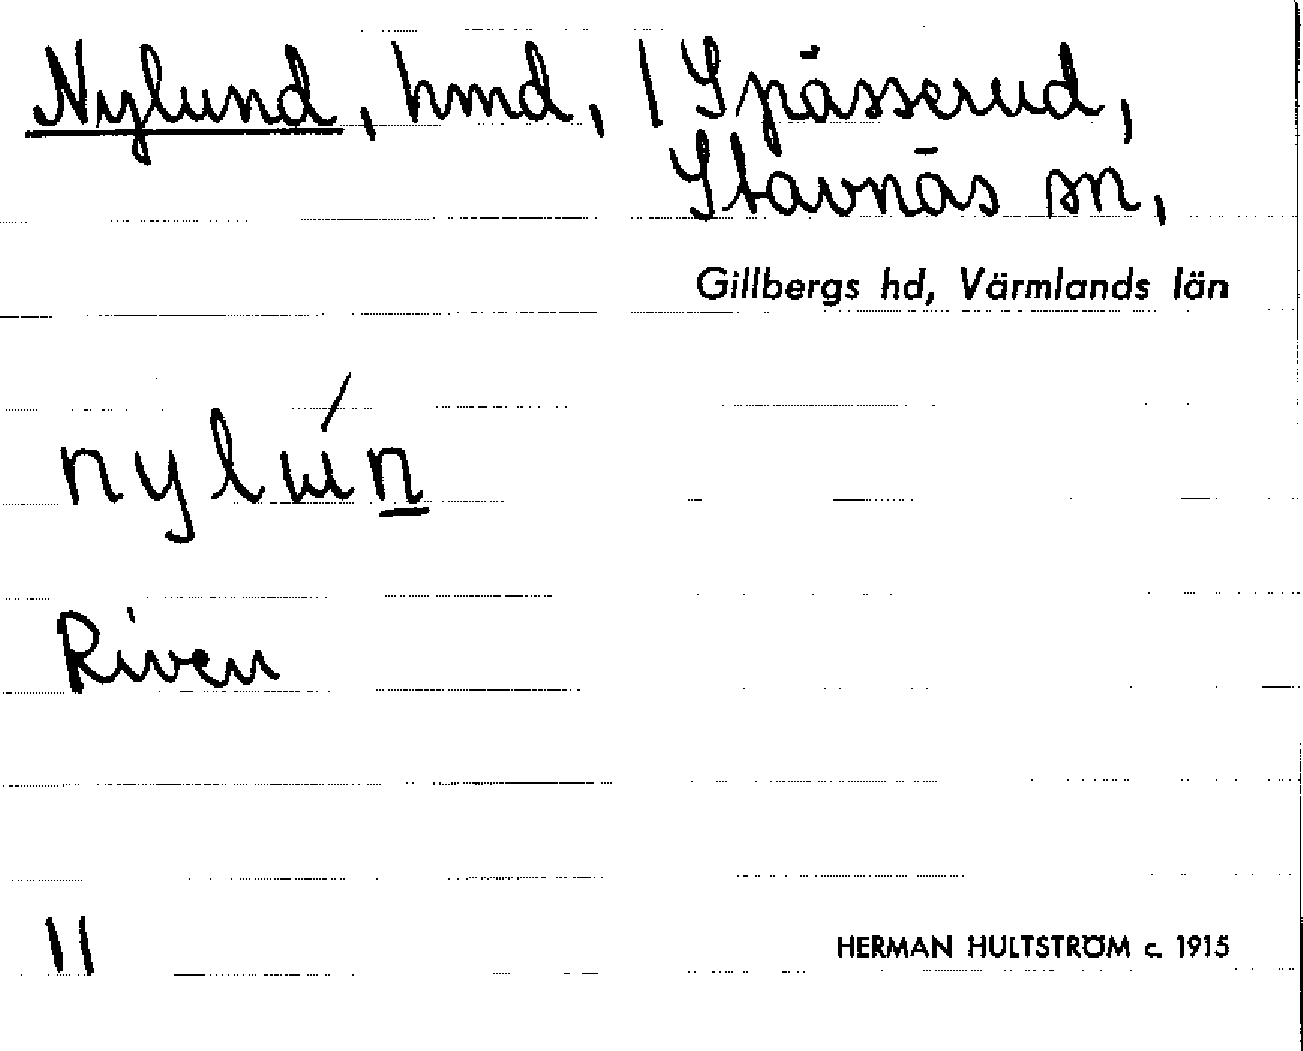 Nylund, hmd, / Spässerud,
Stavnäs sn,
Gillbergs hd, Värmlands län
nylún
Riven
11
HERMAN HULTSTRÖM c. 1915